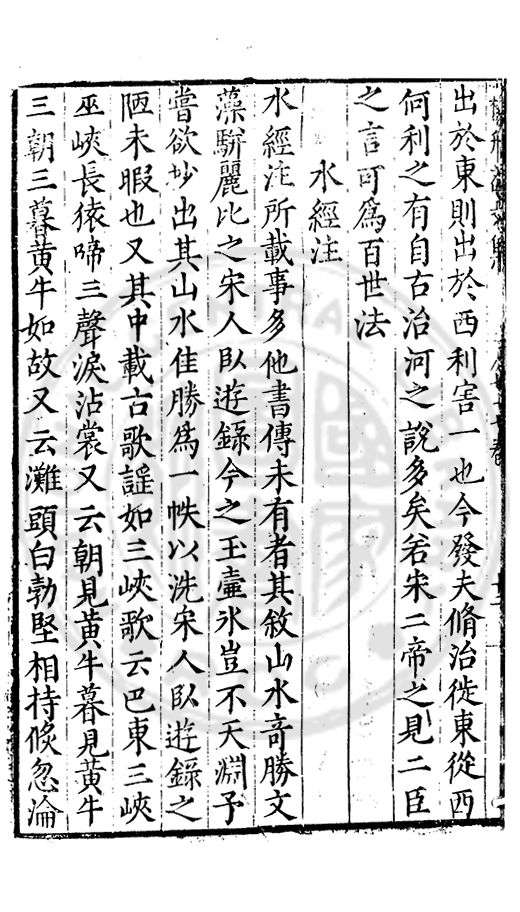 出於東則出於西利害一也今發夫脩治從東從西
何利之有自古治河之說多矣若宋二帝之見二臣
之言可爲百世法
水經注
水經注所載事多他書傳未有者其敘山水奇勝文
藻駢麗比之宋人臥遊錄今之玉壷氷豈不天淵予
嘗欲抄出其山水佳勝爲一帙以洗宋人臥遊錄之
陋未暇也又其中載古歌謡如三峽歌云巴東三峽
巫峽長猿啼三聲淚沾裳又云朝見黃牛暮見黃牛
三朝三暮黃牛如故又云灘頭白勃堅相持倐忽淪